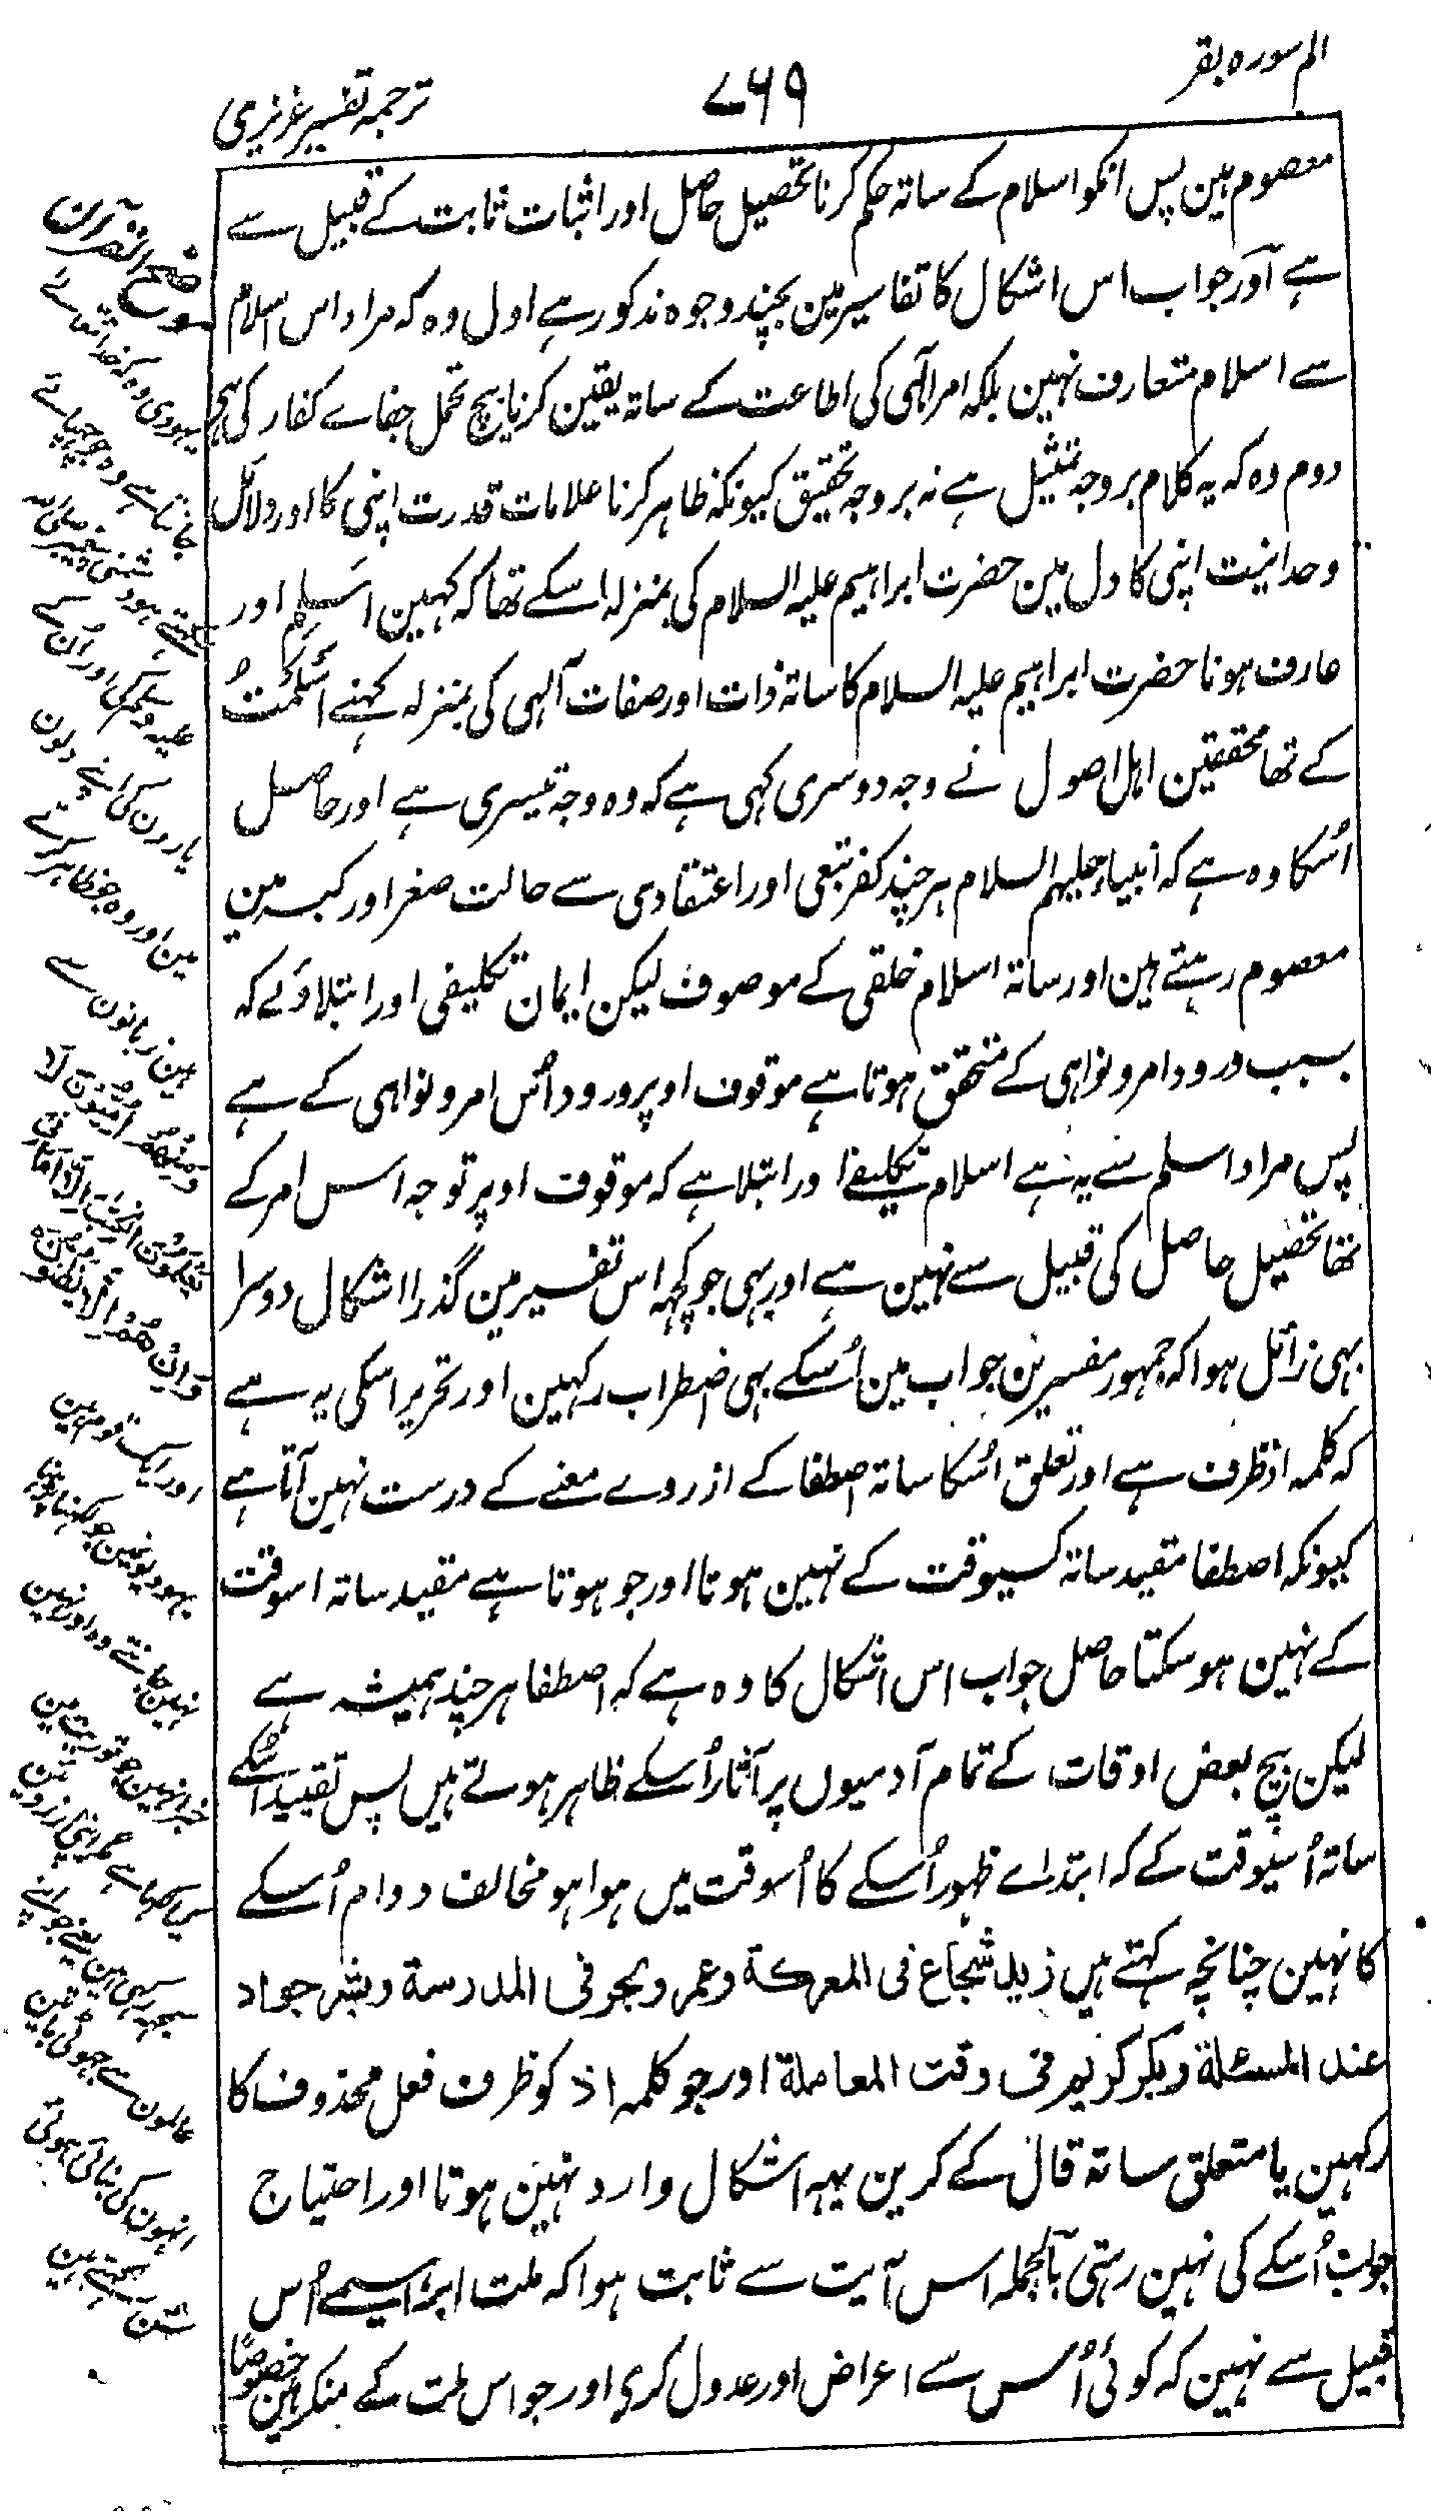 الم سورہ بقر
۷۶۹
ترجمہ تفسیر عزیزی
معصوم ہین پس انکو اسلام کے ساتہ حکم کرنا تحصیل حاصل اور اثبات ثابت کے قبیل سے
ہے اور جواب اس اشکال کا تفاسیر مین بچند وجوہ مذکور ہے اول وہ کہ مراد اس اسلام
سے اسلام متعارف نہین بلکہ امر الٰہی کی اطاعت کے ساتہ یقین کرنا بیچ تحمل جفاے کفار کی ہی
دوم وہ کہ یہ کلام بر وجہ تمثیل ہے نہ بر وجہ تحقیق کیونکہ ظاہر کرنا علامات قدرت اپنی کا اور دلائل
وحدانیت اپنی کا دل مین حضرت ابراہیم علیہ السلام کی بمنزلہ اسکے تھا کہ کہین اَسْلِمْ اور
عارف ہونا حضرت ابراہیم علیہ السلام کا ساتہ ذات اور صفات آلٰہی کی بمنزلہ کہنے اَسْلَمْتُ
کے تھا محققین اہل اصول نے وجہ دوسری کہی ہے کہ وہ وجہ تیسری ہے اور حاصل
اُسکا وہ ہے کہ انبیاء علیہم السلام ہر چند کفر تبعی اور اعتقادی سے حالت صغر اور کبر مین
معصوم رہتے ہین اور ساتہ اسلام خلقی کے موصوف لیکن ایمان تکلیفی اور ابتلاؤے کہ
بسبب ورود امر و نواہی کے متحقق ہوتا ہے موقوف اوپر ورود اُس امر و نواہی کے ہے
پس مراد اسلم سے یہ ہے اسلام تکلیفے اور ابتلا ہے کہ موقوف اوپر توجہ اس امر کے
تھا تحصیل حاصل کی قبیل سے نہین ہے اور بہی جو کچہ اس تفسیر مین گذرا اشکال دوسرا
بہی زائل ہوا کہ جمہور مفسرین جواب مین اُسکے بہی اضطراب رکہین اور تحریر اسکی یہ ہے
کہ کلمہ اذ ظرف ہے اور تعلق اُسکا ساتہ اصطفا کے از روے معنے کے درست نہین آتا ہے
کیونکہ اصطفا مقید ساتہ کسیوقت کے نہین ہوتا اور جو ہوتا ہے مقید ساتہ اسوقت
کے نہین ہوسکتا حاصل جواب اس اشکال کا وہ ہے کہ اصطفا ہر چند ہمیشہ ہے
لیکن بیچ بعض اوقات کے تمام آدمیوں پر آثار اُسکے ظاہر ہوتے ہیں پس تقیید اُسکے
ساتہ اُسیوقت کے کہ ابتداے ظہور اُسکے کا اُسوقت میں ہوا ہو مخالف دوام اُسکے
کا نہین چنانچہ کہتے ہیں زید شجاع فی المعرکة وعمرو بحر فی المدرسة وبشر جواد
عند المسئلة وبکر کریم فی وقت المعاملة اور جو کلمہ اذ کو ظرف فعل محذوف کا
رکہین یا متعلق ساتہ قال کے کرین یہہ اشکال وارد نہین ہوتا اور احتیاج
جواب اُسکے کی نہین رہتی بالجملہ اس آیت سے ثابت ہوا کہ ملت ابراہیمے اُس
قبیل سے نہین کہ کوئی اُس سے اعراض اور عدول کرے اور جو اس ملت کے منکر ہین خصوصًا
موضح القرآن
یہودی وہ کہ خدا تعالے
جانتا ہے وہ جو چہپاتے
ہو دشمنی پیغمبر صلی اللہ
علیہ وسلم کی اور اُن کے
یارون کی اپنے دلون
مین اور وہ جو ظاہر کرتے
ہین زبانون سے
وَمِنْهُمْ اُمِّیُّوْنَ لَا
یَعْلَمُوْنَ الْکِتٰبَ اِلَّا اَمَانِیَّ
وَاِنْ هُمْ اِلَّا یَظُنُّوْنَ
اور ایک قوم ہین
یہودیونمین جو لکہنا پڑہنا
نہین جانتے وہ اور نہین
خبر نہین جو توریت مین
کیا لکہا ہے مگر اپنی آرزوین
سمجہہ رکہی ہین یعنے جو اپنے
عالمون سے جہوٹی باتین
انہون کی بنائی ہوئی
سُن رکہتے ہین